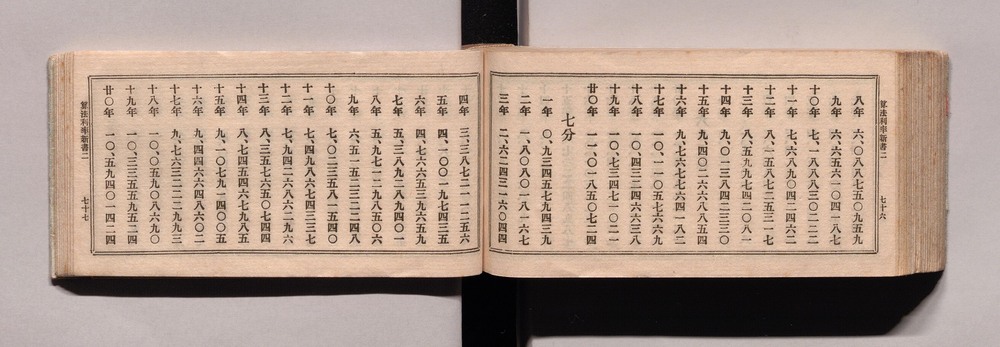 算法利率新書二
七十六
八年 六、〇八八七五〇九五九
九年 六、六五六一〇四一八七
十〇年 七、一八八八三〇二二二
十一年 七、六八九〇四二四六二
十二年 八、一五八七二五三一七
十三年 八、五九九七四二〇八一
十四年 九、〇一三八四二三三〇
十五年 九、四〇二六六八八五四
十六年 九、七六七七六四一八二
十七年 一〇、一一〇五七六六九
十八年 一〇、四三二四六六三八
十九年 一〇、七三四七一〇二一
廿〇年 一一、〇一八五〇七二四
七分
一年 〇、九三四五七九四三九
二年 一、八〇八〇一八一六七
三年 二、六二四三一六〇四四
四年 三、三八七二一一二五六
五年 四、一〇〇一九七四三五
六年 四、七六六五三九六五九
七年 五、三八九二八九四〇一
八年 五、九七一二九八五〇六
九年 六、五一五二三二二四八
十〇年 七、〇二三五八一五四〇
十一年 七、四九八六七四三三七
十二年 七、九四二六八六二九六
十三年 八、三五七六五〇七四四
十四年 八、七四五四六七九八五
十五年 九、一〇七九一四〇〇五
十六年 九、四四六六四八六〇二
十七年 九、七六三二二二九九三
十八年 一〇、〇五九〇八六九〇
十九年 一〇、三三五五九五二四
廿〇年 一〇、五九四〇一四二四
算法利率新書二
七十七